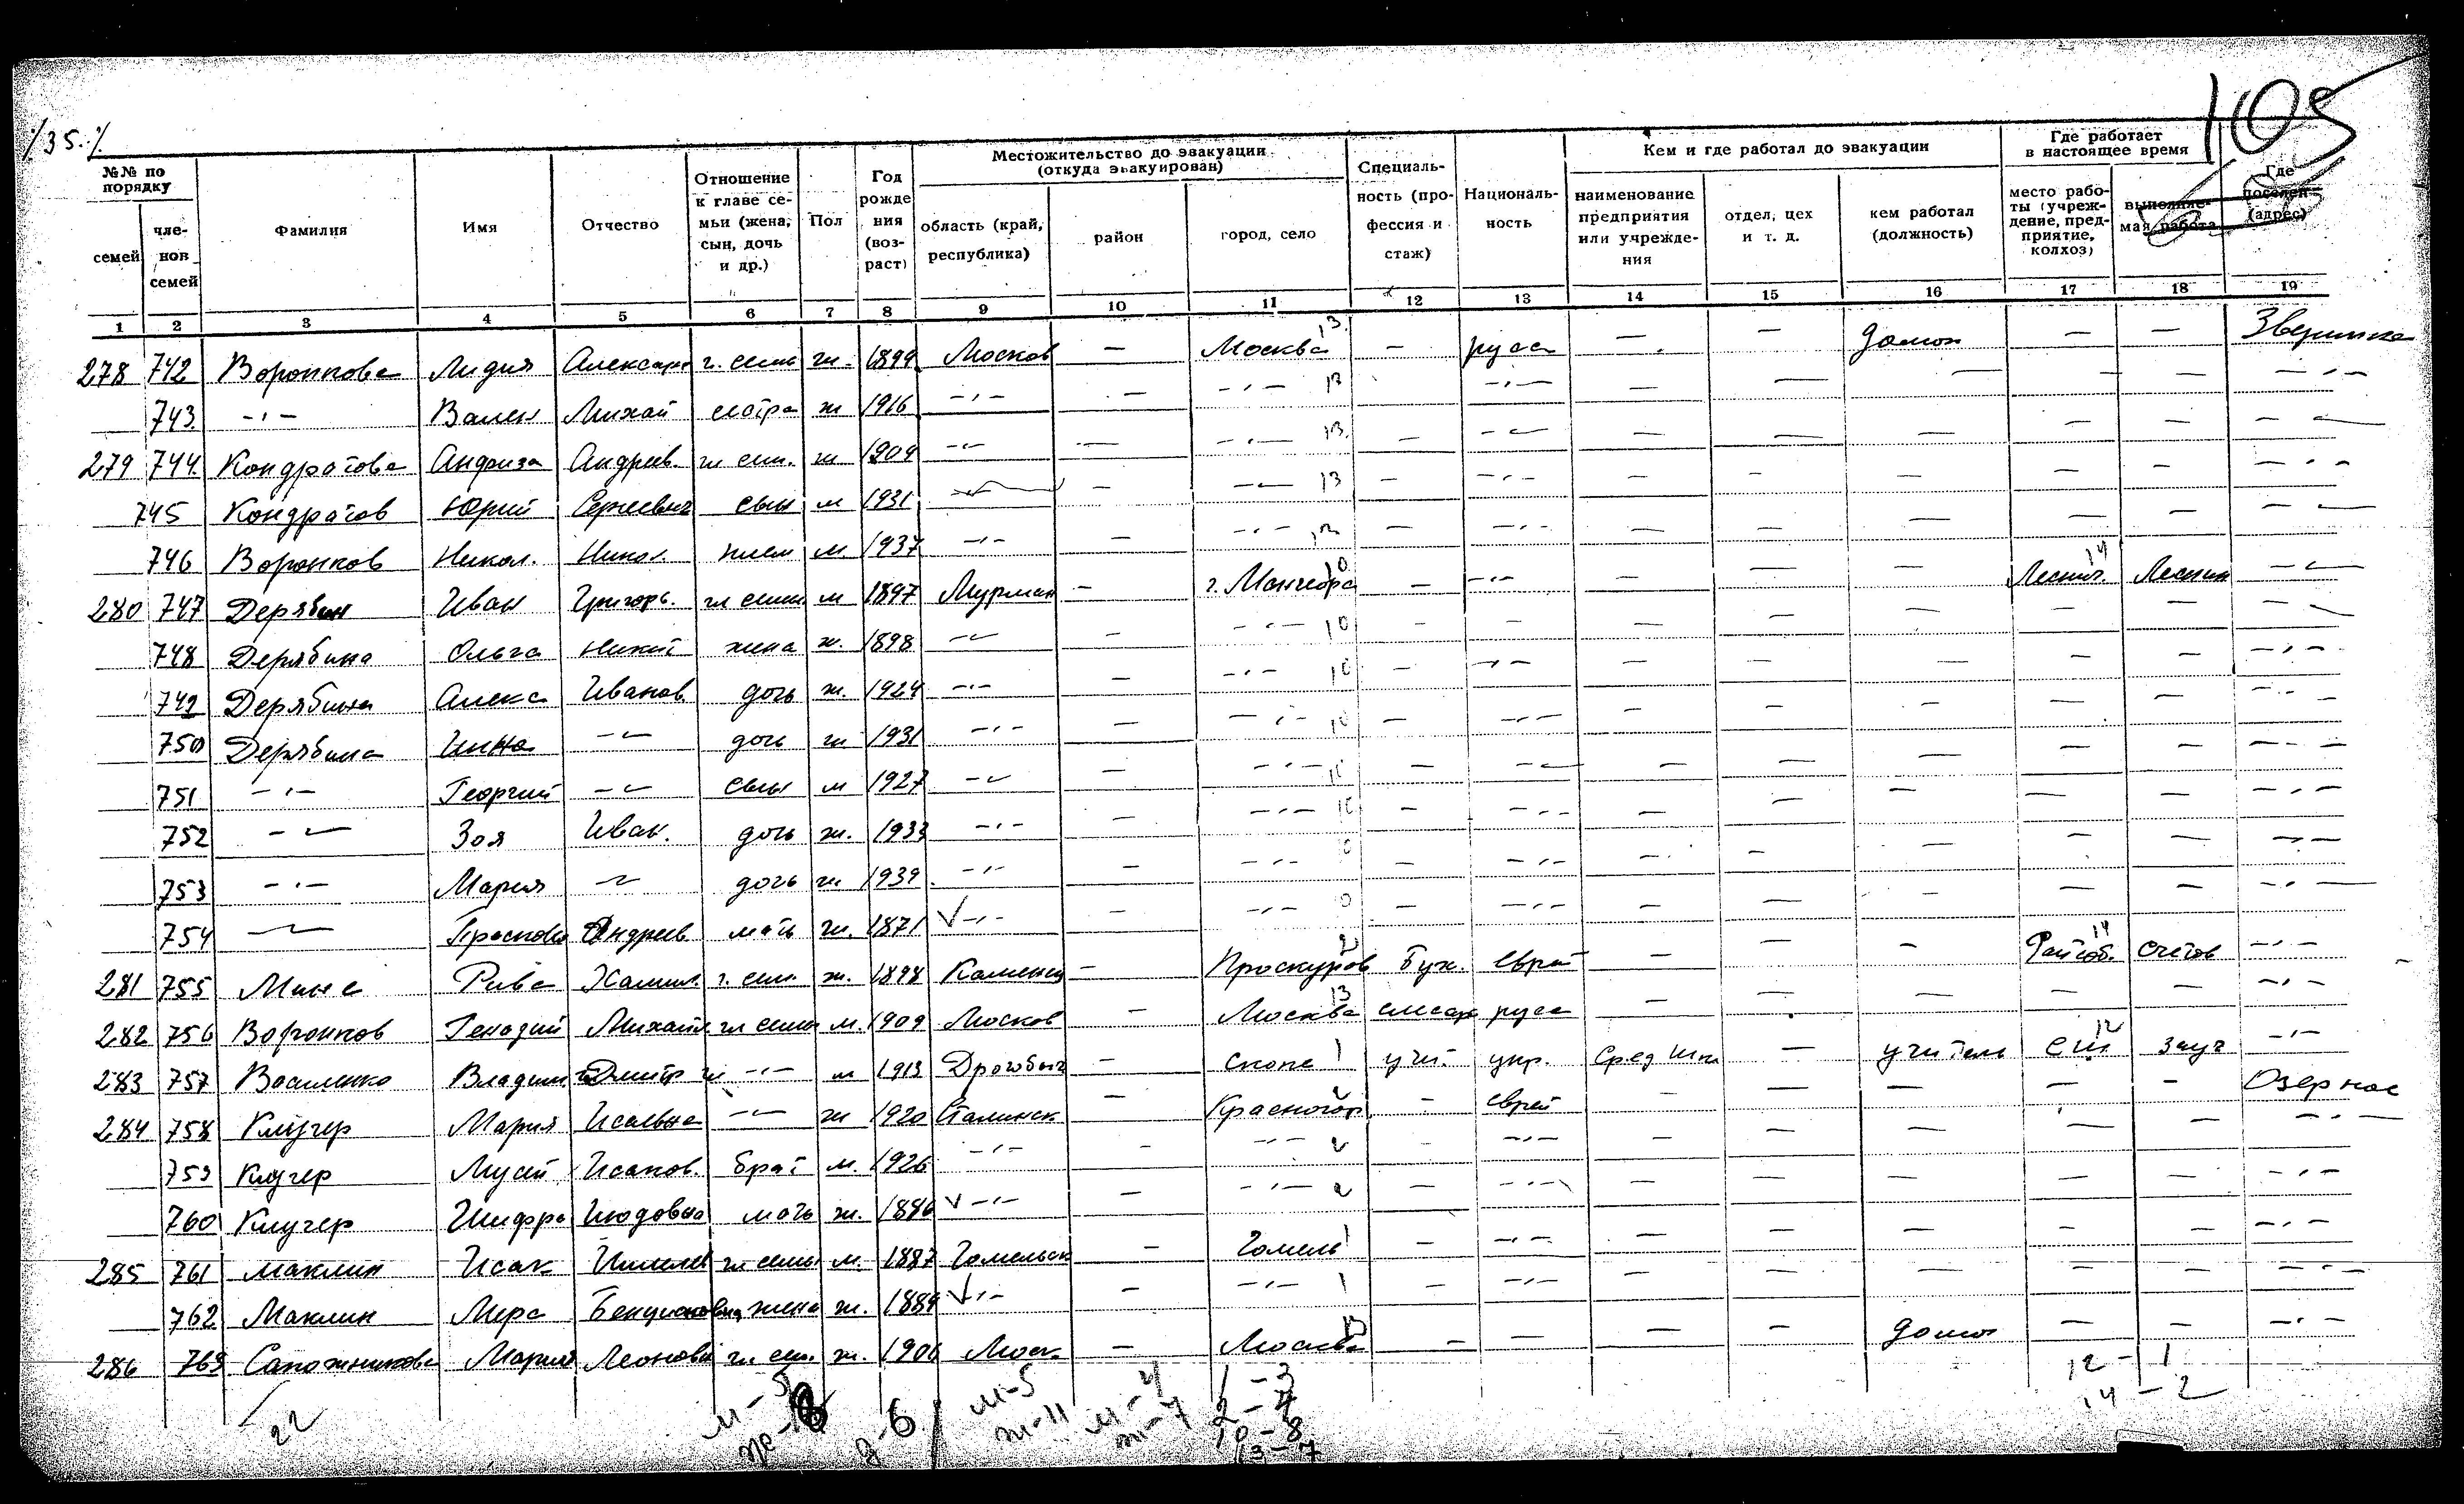 /35./
105
№№ по порядку
семей
членов семей
Фамилия
Имя
Отчество
Отношение к главе семьи (жена, сын, дочь и др.)
Пол
Год рождения (возраст)
Местожительство до эвакуации (откуда эвакуирован)
область (край, республика)
район
город, село
Специальность (профессия и стаж)
Национальность
Кем и где работал до эвакуации
наименование предприятия или учреждения
отдел, цех и т. д.
кем работал (должность)
Где работает в настоящее время
место работы (учреждение, предприятие, колхоз)
выполняемая работа
Где поселен (адрес)
1 2 3 4 5 6 7 8 9 10 11 12 13 14 15 16 17 18 19
278 742 Воронкова Лидия Александ г. семь ж. 1899 Москов — Москва 13 — русс — — домох — —
743 -"- Вален Михай сестра ж 1916 -"- — -"- 13 -"- — — — — — -"-
279 744 Кондратова Андреев. гл сем. ж 1909 -"- — -"- 13 — -"- — — — — — -"-
745 Кондратов Юрий Сергеевич сын м 1931 -"- — -"- 13 — -"- — — — — — -"-
746 Воронков Никол. Никол. плем м 1937 -"- — -"- 13 — -"- — — — — — -"-
280 747 Дерябин Иван Григорь. гл семь. м 1897 Мурман — 10 — -"- — — — Леснич. 14 Лесник -"-
748 Дерябина Ольга Никит жена ж. 1898 -"- — -"- 10 — -"- — — — — — -"-
749 Дерябина Алекс Иванов дочь ж. 1924 -"- — -"- 10 — -"- — — — — — -"-
750 Дерябина Инна -"- дочь ж 1931 -"- — -"- 10 — -"- — — — — — -"-
751 -"- Георгий -"- сын м 1927 -"- — -"- 10 — -"- — — — — — -"-
752 -"- Зоя Иван. дочь ж. 1933 -"- — -"- 10 — -"- — — — — — -"-
753 -"- Мария -"- дочь ж 1939 -"- — -"- 10 — -"- — — — — — -"-
754 -"- Прасковья Андреев мать ж. 1871 V -"- — -"- 10 — -"- — — — — — -"-
281 755 Рива г. сем. ж. 1898 Каменец — Проскуров 2 Бух. еврей — — — 14 счетов -"-
282 756 Воронков Генадий Михайл гл семьи м. 1909 Москов — Москва 13 слесарь русс — — — — — -"-
283 757 Василенко Владим Дмитр гл -"- м 1913 Дрогобыч — 1 учит. укр. Сред шк — учитель СШ 12 завуч -"-
284 758 Клугер Мария Исаевна -"- ж 1920 Сталинск — 2 — еврей — — — — —
759 Клугер Мусий Исаков. брат м. 1926 -"- — -"- 2 — -"- — — — — — -"-
760 Клугер Шифра Июдовна мать ж. 1896 V -"- — -"- 2 — -"- — — — — — -"-
285 761 Маклин Исак гл семьи м. 1887 Гомельск — Гомель 1 — -"- — — — — — -"-
762 Маклин Мера Бенционовна жена ж. 1889 V -"- — -"- 1 — -"- — — — — — -"-
286 763 Сапожникова Мария Леоновн гл. сем. ж. 1906 Моск — Москва 13 — — — — домох — — -"-
22
д-6
м-5
ж-11
м-4
ж-7
1-3
10-8
13-7
12-1
14-2